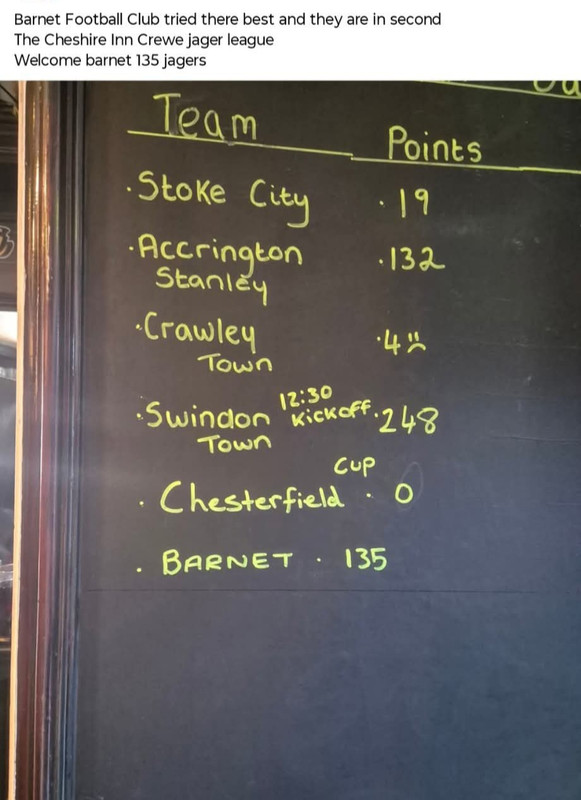 Barnet Football Club tried there best and they are in second
The Cheshire Inn Crewe jager league
Welcome barnet 135 jagers
Team Points
·Stoke City ·19
·Accrington ·132
Stanley
·Crawley ·4
Town
12:30
·Swindon Kickoff·248
Town
Cup
·Chesterfield·0
·BARNET·135